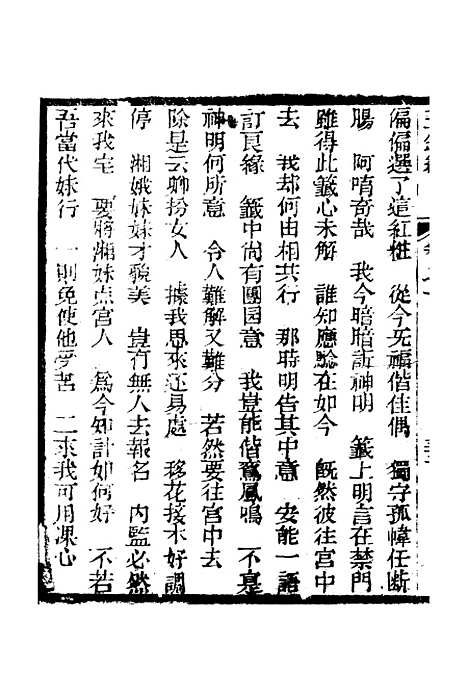 偏偏選了這紅粧　從今死福偕佳偶　獨守孤幃任斷
腸　阿唷奇哉　我今暗暗訴神明　籤上明言在禁門
雖得此籤心未解　誰知應驗在如今　旣然彼往宮中
去　我却何由相共行　那時明告其中意　安能一語
訂良緣　籤中尚有團圓意　我豈能偕鸞鳳鳴　不是
神明何所意　令人難解又難分　若然要往宮中去
除是云聊扮女人　據我思來还易處　移花接木好調
停　湘娥妹妹才貌美　豈冇無人去報名　內監必然
來我宅　要將湘妹点宮人　爲今如計如何好　不若
吾當代妹行　一則免使他受苦　二來我可用深心